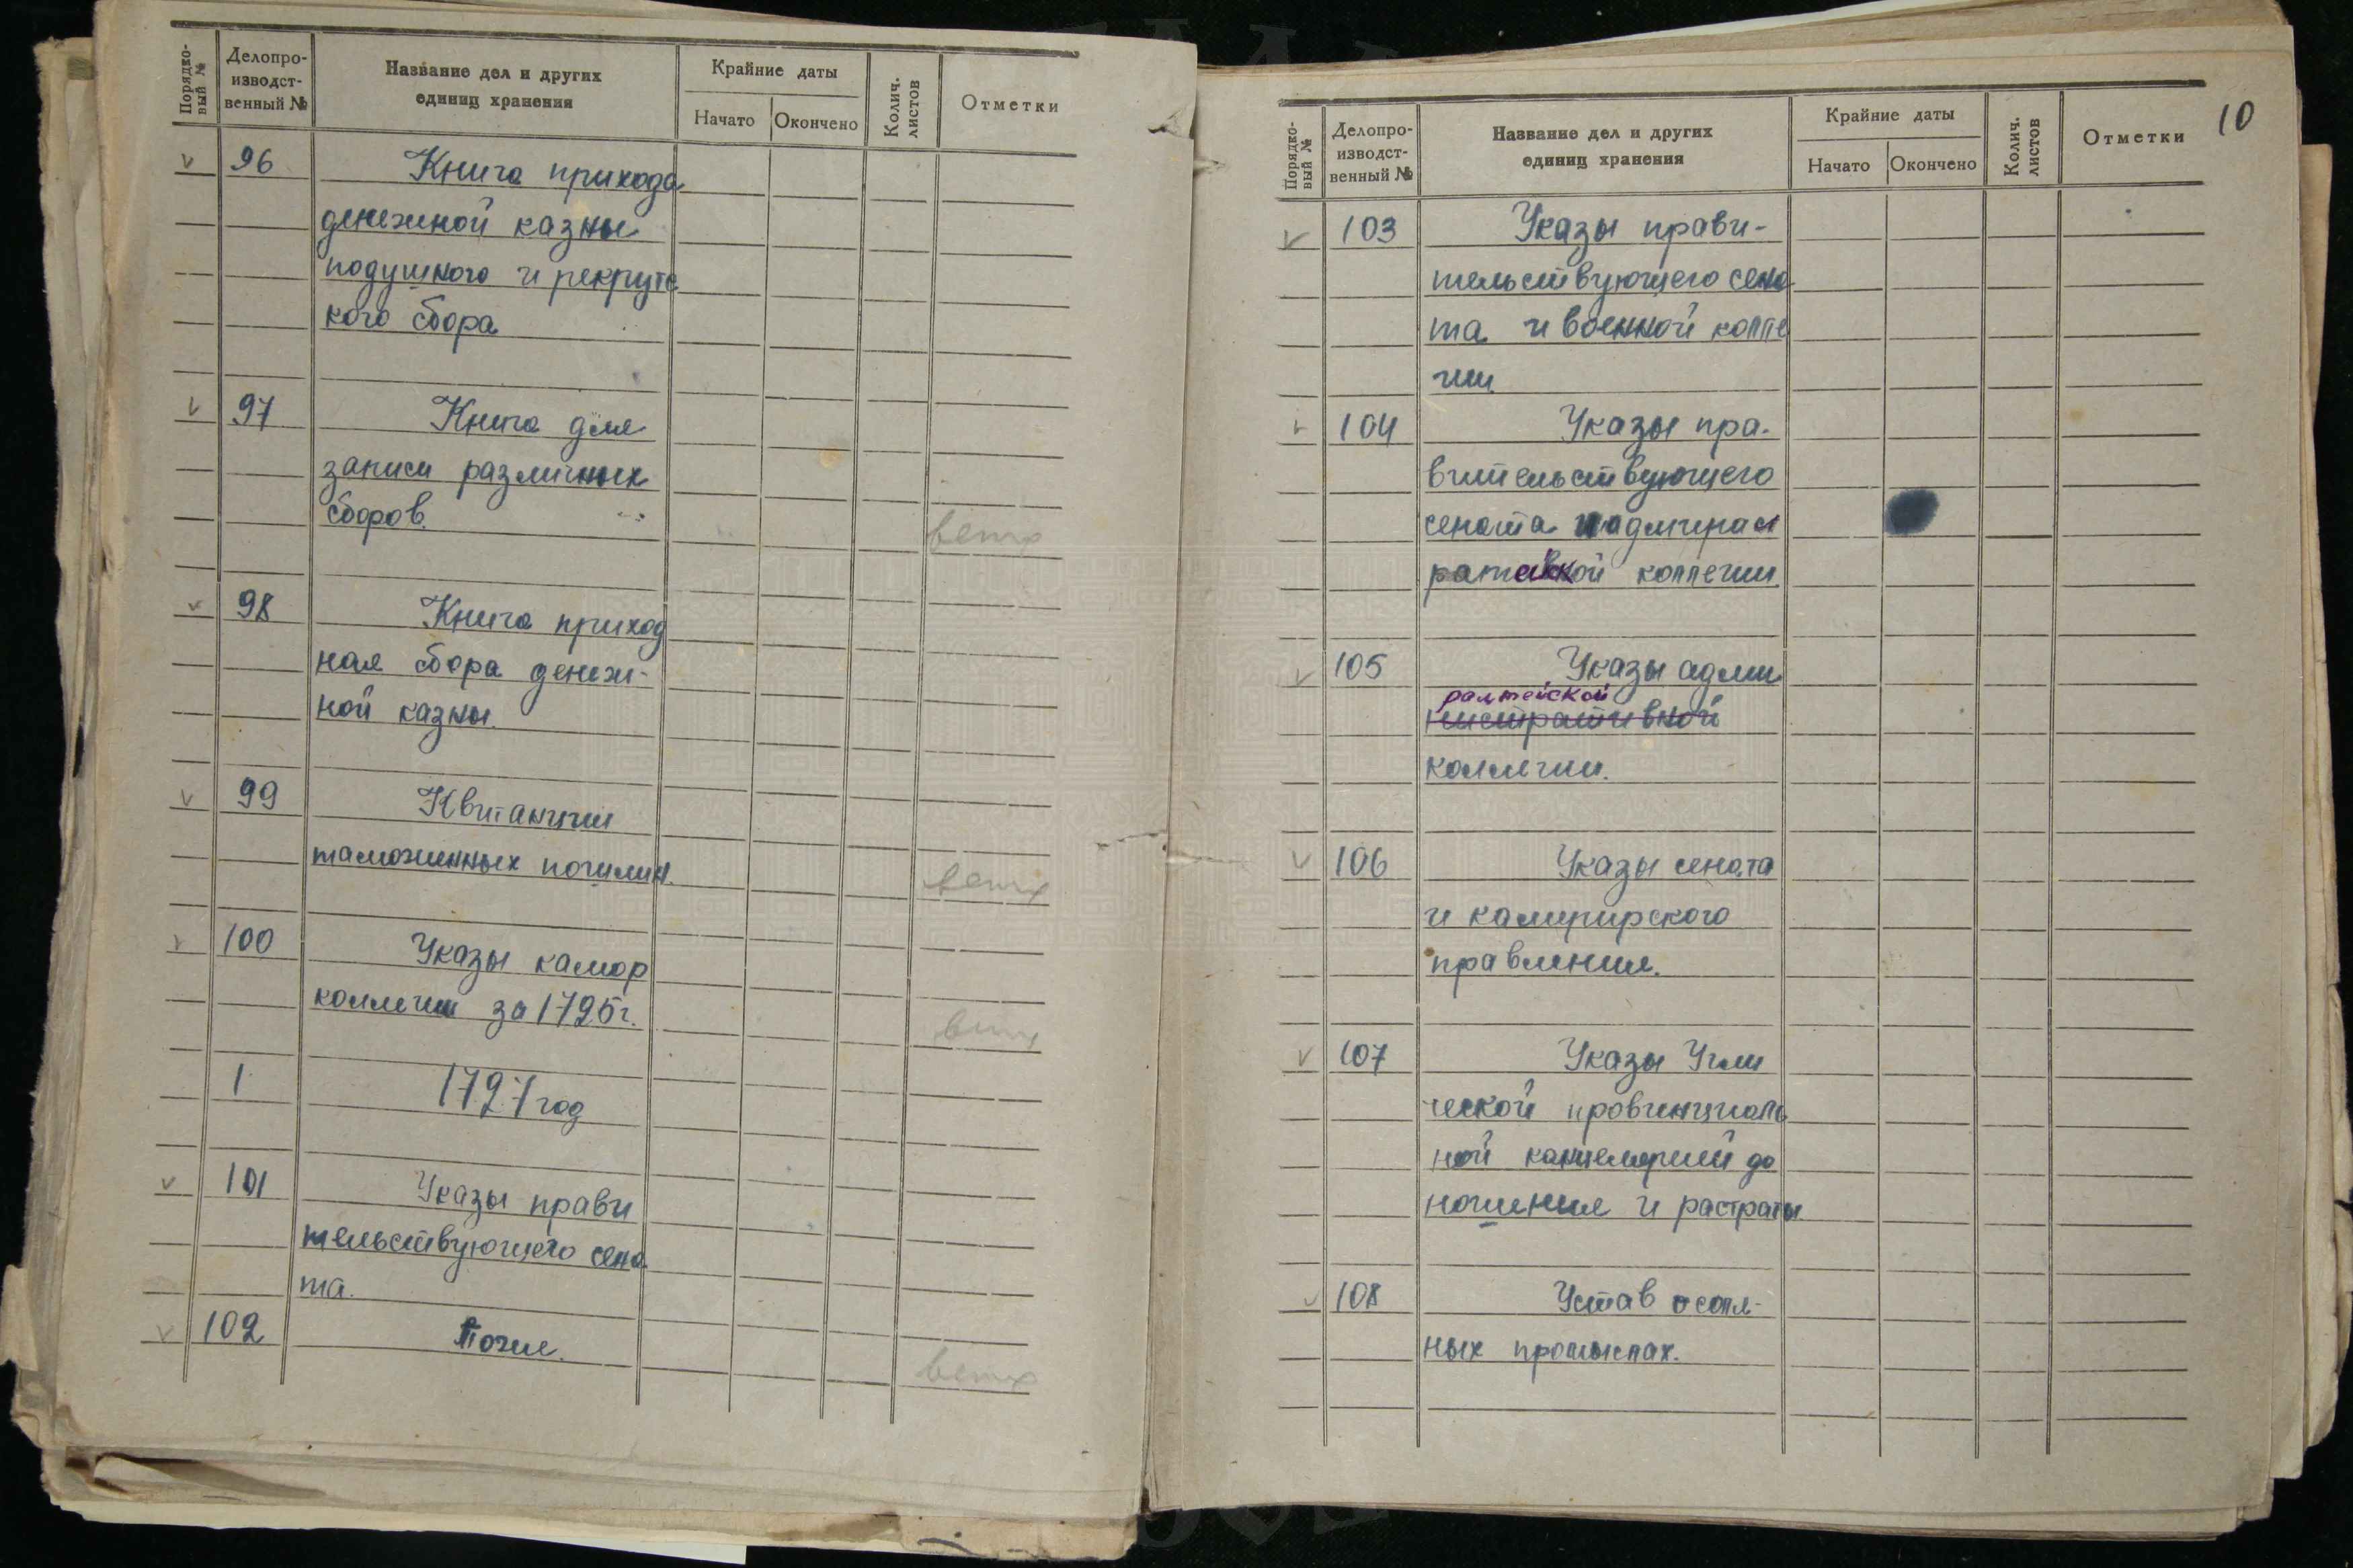 Порядко-
вый №
Делопро-
изводст-
венный №
Название дел и других
единиц хранения
Крайние даты
Начато
Окончено
Колич.
листов
Отметки
96 Книга прихода
денежной казны
подушного и рекрутс
кого сбора
97 Книга для
записи различных
сборов.
ветх
98 Книга приход
ная сбора денеж-
ной казны.
99 Квитанции
таможенных пошлин.
ветх
100 Указы камор
коллегии за 1725г.
ветх
1 1727 год
101 Указы прави
тельствующего сена
та.
102 Тоже.
ветх
10
Порядко-
вый №
Делопро-
изводст-
венный №
Название дел и других
единиц хранения
Крайние даты
Начато
Окончено
Колич.
листов
Отметки
103 Указы прави-
тельствующего сена
та и военной колле
гии
104 Указы пра-
вительствующего
сената и адмирал
коллегии.
105 Указы адми
ралтейской
нистративной
коллегии.
106 Указы сената
и камерирского
правления.
107 Указы Угли
ческой провинциаль
ной канцелярии до
ношения и растраты
108 Устав о соля-
ных промыслах.